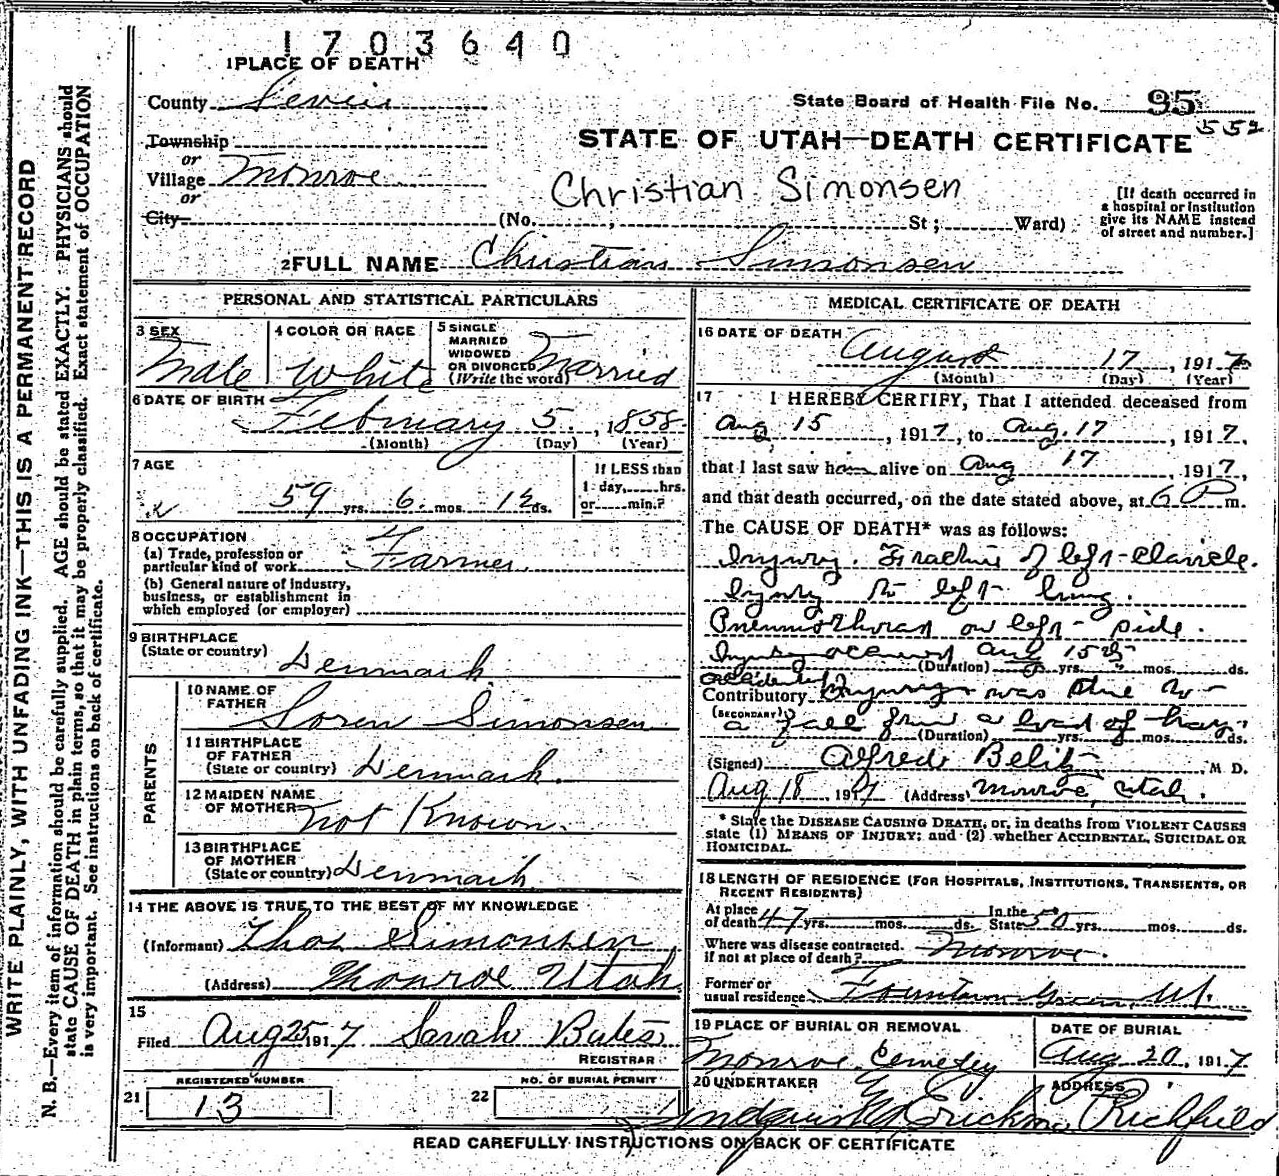 1703640
1 PLACE OF DEATH
County Sevier
State Board of Health File No. 95
552
STATE OF UTAH—DEATH CERTIFICATE
Township
or
Village Monroe
or
City
Christian Simonsen
(No. , St; Ward)
[If death occurred in
a hospital or institution
give its NAME instead
of street and number.]
2 FULL NAME Christian Simonsen
PERSONAL AND STATISTICAL PARTICULARS
3 SEX Male
4 COLOR OR RACE White
5 SINGLE
MARRIED
WIDOWED
OR DIVORCED
(Write the word) Married
6 DATE OF BIRTH February 5, 1858
(Month) (Day) (Year)
7 AGE
59 yrs. 6 mos. 12 ds.
If LESS than
1 day, hrs.
or min.?
8 OCCUPATION
(a) Trade, profession or
particular kind of work Farmer
(b) General nature of industry,
business, or establishment in
which employed (or employer)
9 BIRTHPLACE
(State or country) Denmark
PARENTS
10 NAME OF
FATHER Soren Simonsen
11 BIRTHPLACE
OF FATHER
(State or country) Denmark.
12 MAIDEN NAME
OF MOTHER Not Known.
13 BIRTHPLACE
OF MOTHER
(State or country) Denmark
14 THE ABOVE IS TRUE TO THE BEST OF MY KNOWLEDGE
(Informant) Thos Simonsen
(Address) Monroe Utah
15
Filed Aug 25 1917 Sarah Bates
REGISTRAR
REGISTERED NUMBER
21 13
NO. OF BURIAL PERMIT
22
MEDICAL CERTIFICATE OF DEATH
16 DATE OF DEATH
August 17, 1917
(Month) (Day) (Year)
17 I HEREBY CERTIFY, That I attended deceased from
Aug 15, 1917, to Aug. 17, 1917,
that I last saw h alive on Aug 17, 1917,
and that death occurred, on the date stated above, at 6 P m.
The CAUSE OF DEATH* was as follows:
Injury. Fracture of left clavicle.
Injury to left lung.
Pneumothorax on left side.
Injury occurred Aug 15th
(Duration) yrs. mos. ds.
accidental
Contributory Injury was due to
(SECONDARY) a fall from a load of hay.
(Duration) yrs. mos. ds.
(Signed) Alfred Belit, M D.
Aug 18, 1917 (Address) Monroe, Utah.
* State the DISEASE CAUSING DEATH, or, in deaths from VIOLENT CAUSES
state (1) MEANS OF INJURY; and (2) whether ACCIDENTAL, SUICIDAL OR
HOMICIDAL.
18 LENGTH OF RESIDENCE (FOR HOSPITALS, INSTITUTIONS, TRANSIENTS, OR
RECENT RESIDENTS)
At place
of death 47 yrs. mos. ds. In the
State 50 yrs. mos. ds.
Where was disease contracted.
if not at place of death? Monroe.
Former or
usual residence Fountain Green, Ut.
19 PLACE OF BURIAL OR REMOVAL
Monroe Cemetery
DATE OF BURIAL
Aug 20, 1917
20 UNDERTAKER
ADDRESS
Richfield
READ CAREFULLY INSTRUCTIONS ON BACK OF CERTIFICATE
WRITE PLAINLY, WITH UNFADING INK—THIS IS A PERMANENT RECORD
N. B.—Every item of information should be carefully supplied. AGE should be stated EXACTLY. PHYSICIANS should
state CAUSE OF DEATH in plain terms, so that it may be properly classified. Exact statement of OCCUPATION
is very important. See instructions on back of certificate.